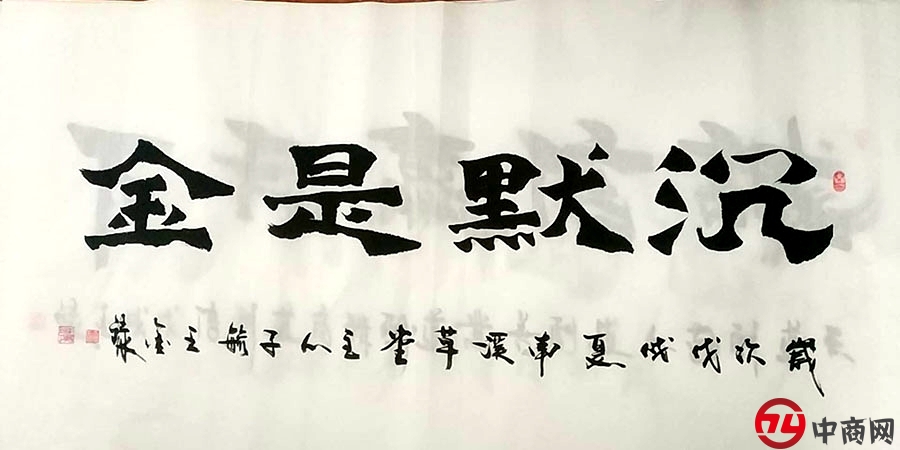 沉默是金
歲次戊戌夏南溪草堂主人子毓王金
中商网